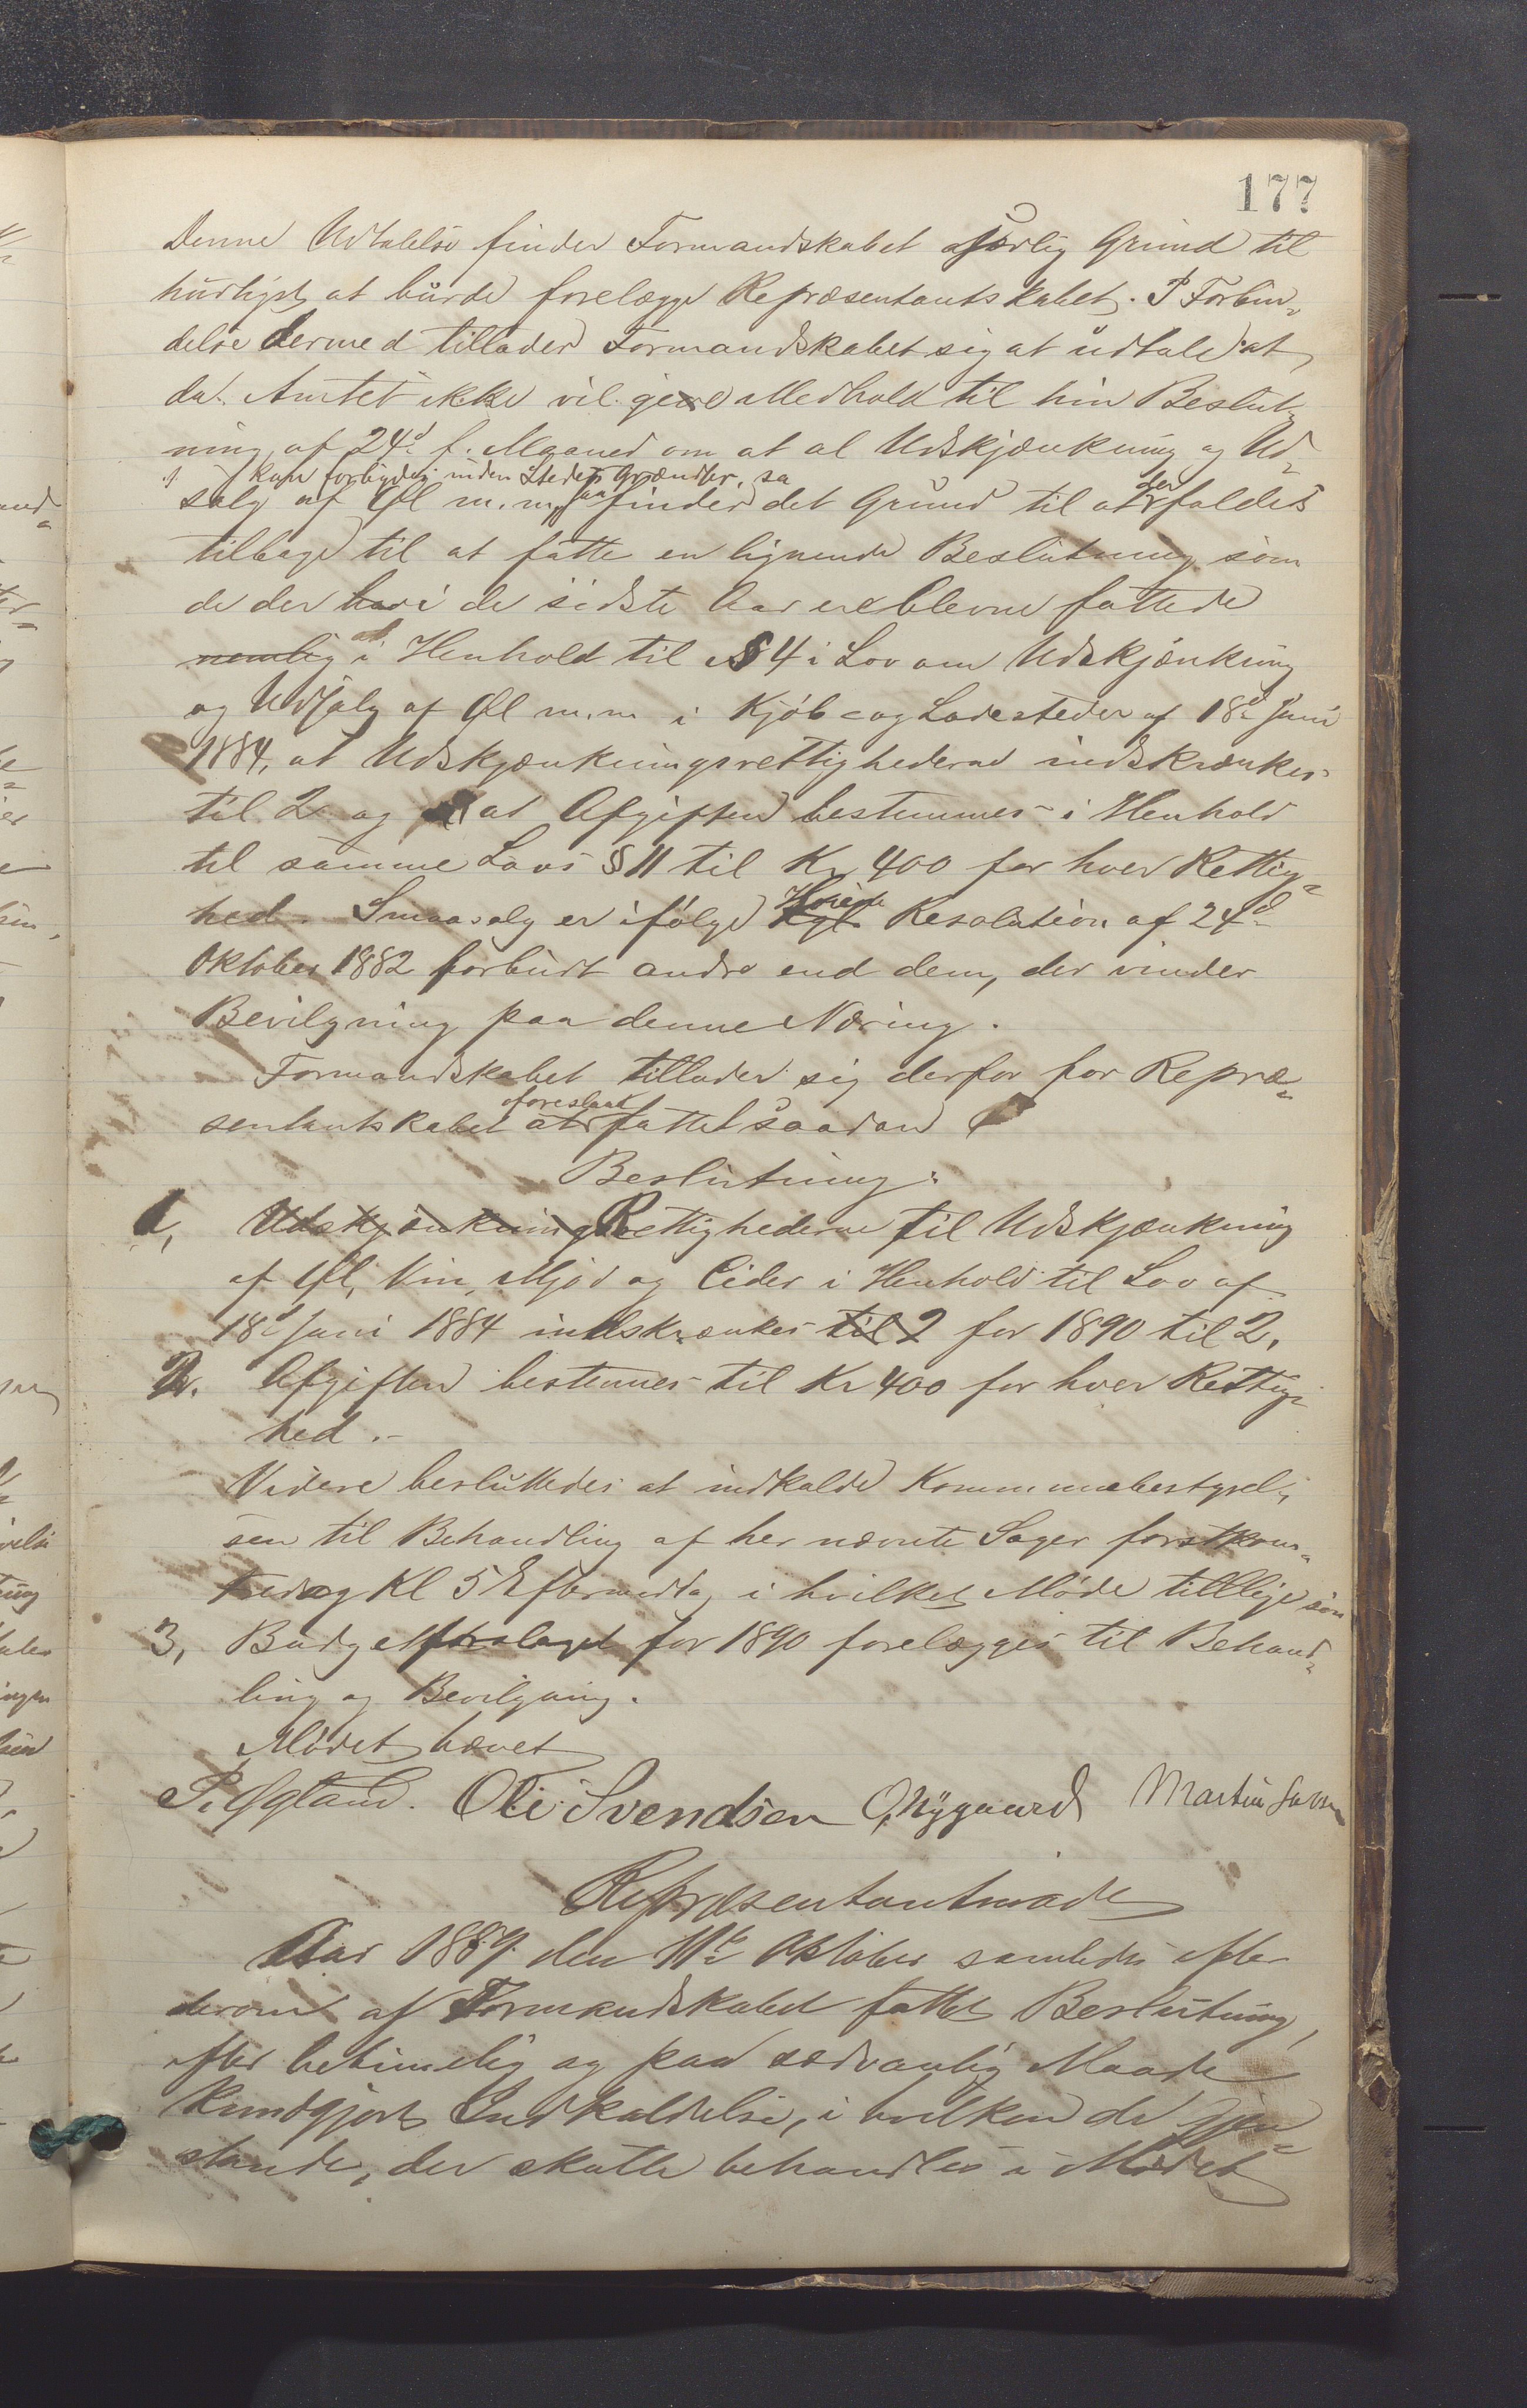 177
Denne Udtalelse finder Formandskabet særlig Grund til
hurtigst at burde forelægge Repræsentantskabet. I Forbin-
delse dermed tillader Formandskabet sig at udtale at
da Amtet ikke vil give Medhold til hin Beslut-
ning af 24d f. Maaned om at al Udskjænkning og Ud-
kan forbydes inden Stedets Grændser, saa
salg af Øl m.m. finder det Grund til at der faldes
tilbage til at fatte en lignende Beslutning som
de der har i de sidste Aar ere blevne fattede
nemlig at i Henhold til § 4 i Lov om Udskjænkning
og Udsalg af Øl m.m i Kjøb- og Ladesteder af 18de Juni
1884, at Udskjænkningsrettighederne indskrænkes
til 2 og at Afgiften bestemmes i Henhold
til samme Lovs § 11 til Kr 400 for hver Rettig-
hed. Smaasalg er ifølge Kgl. Høieste Resolution af 24d
Oktober 1882 forbudt andre end dem, der vinder
Bevilgning paa denne Næring.
Formandskabet tillader sig derfor for Repræ-
sentantskabet foreslaat at fattet saadan
Beslutning:
1, Udskjænkningsrettighederne til Udskjænkning
af Øl, Vin, Mjød og Cider i Henhold til Lov af
18de Juni 1884 indskrænkes til 2 for 1890 til 2.
2. Afgiften bestemmes til Kr 400 for hver Rettig-
hed.-
Videre besluttedes at indkalde Kommunebestyrel-
sen til Behandling af her nævnte Sager førstkom-
Fredag Kl 5 Eftermidd, i hvilket Møde tillige som
3, Budgetforslaget for 1890 forelægges til Behand-
ling og Bevilgning.
Mødet hævet
P. Øgland. Ole Svendsen O, Nygaard Martin
Repræsentantmøde
Aar 1889 den 11te Oktober samledes efter
derom af Formandskabet fattet Beslutning,
efter betimelig og paa sædvanlig Maade
kundgjort Indkaldelse, i hvilken de Gjen-
stande, der skulle behandles i Mødet